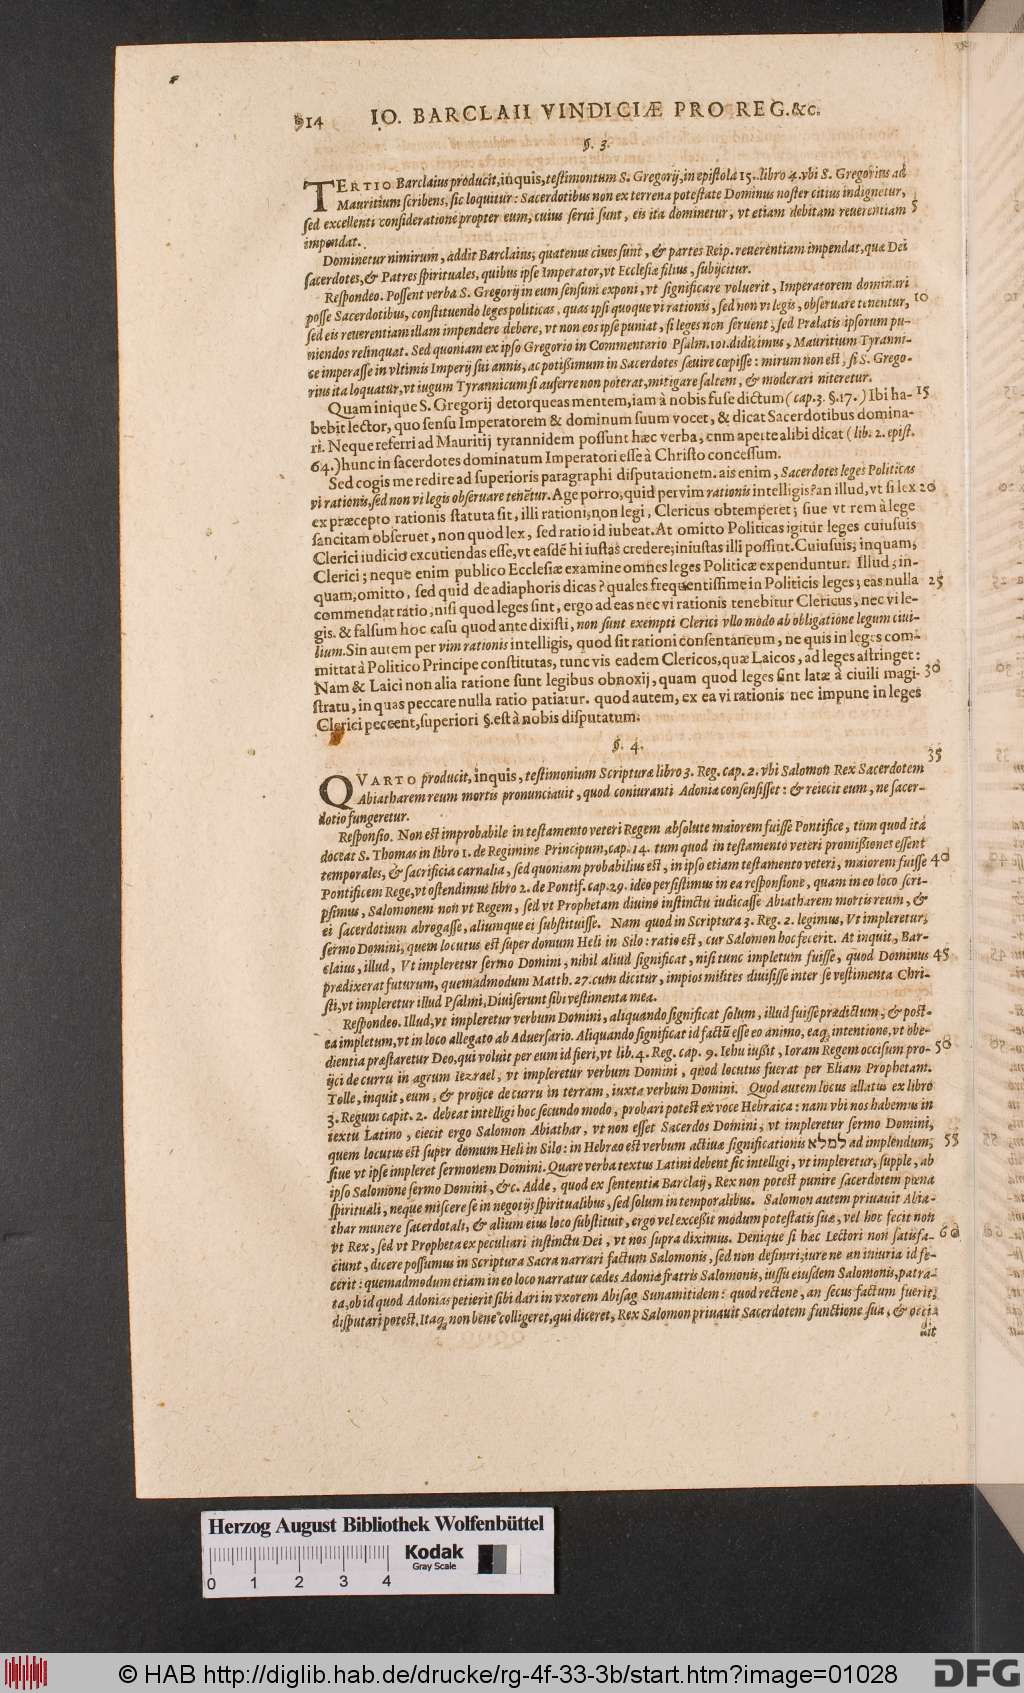 914 IO. BARCLAII VINDICIÆ PRO REG. &c.
§. 3.
TERTIO Barclaius producit, inquis, testimonium S. Gregorij, in epistola 15. libro 4. vbi S. Gregorius ad
Mauritium scribens, sic loquitur: Sacerdotibus non ex terrena potestate Dominus noster citius indignetur,
sed excellenti consideratione propter eum, cuius serui sunt, eis ita dominetur, vt etiam debitam reuerentiam 5
impendat.
Dominetur nimirum, addit Barclaius, quatenus ciues sunt, & partes Reip. reuerentiam impendat, quæ Dei
sacerdotes, & Patres spirituales, quibus ipse Imperator, vt Ecclesiæ filius, subijcitur.
Respondeo. Possent verba S. Gregorij in eum sensum exponi, vt significare voluerit, Imperatorem dominari
posse Sacerdotibus, constituendo leges politicas, quas ipsi quoque vi rationis, sed non vi legis, obseruare tenentur, 10
sed eis reuerentiam illam impendere debere, vt non eos ipse puniat, si leges non seruent, sed Prælatis ipsorum pu-
niendos relinquat. Sed quoniam ex ipso Gregorio in Commentario Psalm. 101. didicimus, Mauritium Tyranni-
ce imperasse in vltimis Imperij sui annis, ac potißimum in Sacerdotes sæuire cœpisse: mirum non est, si S. Grego-
rius ita loquatur, vt iugum Tyrannicum si auferre non poterat, mitigare saltem, & moderari niteretur.
Quam inique S. Gregorij detorqueas mentem, iam à nobis fuse dictum (cap. 3. §. 17.) Ibi ha- 15
bebit lector, quo sensu Imperatorem & dominum suum vocet, & dicat Sacerdotibus domina-
ri. Neque referri ad Mauritij tyrannidem possunt hæc verba, cnm aperte alibi dicat (lib. 2. epist.
64.) hunc in sacerdotes dominatum Imperatori esse à Christo concessum.
Sed cogis me redire ad superioris paragraphi disputationem. ais enim, Sacerdotes leges Politicas
vi rationis, sed non vi legis obseruare tenētur. Age porro, quid per vim rationis intelligis? an illud, vt si lex 20
ex præcepto rationis statuta sit, illi rationi, non legi, Clericus obtemperet; siue vt rem à lege
sancitam obseruet, non quod lex, sed ratio id iubeat. At omitto Politicas igitur leges cuiusuis
Clerici iudicio excutiendas esse, vt easdē hi iustas credere, iniustas illi possint. Cuiusuis, inquam,
Clerici; neque enim publico Ecclesiæ examine omnes leges Politicæ expenduntur. Illud, in-
quam, omitto, sed quid de adiaphoris dicas? quales frequentissime in Politicis leges; eas nulla 25
commendat ratio, nisi quod leges sint, ergo ad eas nec vi rationis tenebitur Clericus, nec vi le-
gis. & falsum hoc casu quod ante dixisti, non sunt exempti Clerici vllo modo ab obligatione legum ciui-
lium. Sin autem per vim rationis intelligis, quod sit rationi consentaneum, ne quis in leges com-
mittat à Politico Principe constitutas, tunc vis eadem Clericos, quæ Laicos, ad leges astringet:
Nam & Laici non alia ratione sunt legibus obnoxij, quam quod leges sint latæ à ciuili magi- 30
stratu, in quas peccare nulla ratio patiatur. quod autem, ex ea vi rationis nec impune in leges
Clerici peccent, superiori §. est à nobis disputatum.
§. 4.
35
QVARTO producit, inquis, testimonium Scripturæ libro 3. Reg. cap. 2. vbi Salomon Rex Sacerdotem
Abiatharem reum mortis pronunciauit, quod coniuranti Adoniæ consensisset: & reiecit eum, ne sacer-
dotio fungeretur.
Responsio. Non est improbabile in testamento veteri Regem absolute maiorem fuisse Pontifice, tum quod ita
doceat S. Thomas in libro 1. de Regimine Principum, cap. 14. tum quod in testamento veteri promißiones essent
temporales, & sacrificia carnalia, sed quoniam probabilius est, in ipso etiam testamento veteri, maiorem fuisse 40
Pontificem Rege, vt ostendimus libro 2. de Pontif. cap. 29. ideo persistimus in ea responsione, quam in eo loco scri-
psimus, Salomonem non vt Regem, sed vt Prophetam diuino instinctu iudicasse Abiatharem mortis reum, &
ei sacerdotium abrogasse, aliumque ei substituisse. Nam quod in Scriptura 3. Reg. 2. legimus, Vt impleretur,
sermo Domini, quem locutus est super domum Heli in Silo: ratio est, cur Salomon hoc fecerit. At inquit, Bar-
claius, illud, Vt impleretur sermo Domini, nihil aliud significat, nisi tunc impletum fuisse, quod Dominus 45
prædixerat futurum, quemadmodum Matth. 27. cum dicitur, impios milites diuisisse inter se vestimenta Chri-
sti, vt impleretur illud Psalmi, Diuiserunt sibi vestimenta mea.
Respondeo. Illud, vt impleretur verbum Domini, aliquando significat solum, illud fuisse prædictum, & post-
ea impletum, vt in loco allegato ab Aduersario. Aliquando significat id factū esse eo animo, eaq; intentione, vt obe-
dientia præstaretur Deo, qui voluit per eum id fieri, vt lib. 4. Reg. cap. 9. Iehu iußit, Ioram Regem occisum pro- 50
ijci de curru in agrum Iezrael, vt impleretur verbum Domini, quod locutus fuerat per Eliam Prophetam.
Tolle, inquit, eum, & proijce de curru in terram, iuxta verbum Domini. Quod autem locus allatus ex libro
3. Regum capit. 2. debeat intelligi hoc secundo modo, probari potest ex voce Hebraica: nam vbi nos habemus in
textu Latino, eiecit ergo Salomon Abiathar, vt non esset Sacerdos Domini, vt impleretur sermo Domini,
quem locutus est super domum Heli in Silo: in Hebræo est verbum actiuæ significationis למלא ad implendum, 55
siue vt ipse impleret sermonem Domini. Quare verba textus Latini debent sic intelligi, vt impleretur, supple, ab
ipso Salomone sermo Domini, &c. Adde, quod ex sententia Barclaij, Rex non potest punire sacerdotem pœna
spirituali, neque miscere se in negotijs spiritualibus, sed solum in temporalibus. Salomon autem priuauit Abia-
thar munere sacerdotali, & alium eius loco substituit, ergo vel exceßit modum potestatis suæ, vel hoc fecit non
vt Rex, sed vt Propheta ex peculiari instinctu Dei, vt nos supra diximus. Denique si hæc Lectori non satisfa- 60
ciunt, dicere possumus in Scriptura Sacra narrari factum Salomonis, sed non definiri, iure ne an iniuria id fe-
cerit: quemadmodum etiam in eo loco narratur cædes Adoniæ fratris Salomonis, iussu eiusdem Salomonis, patra-
ta, ob id quod Adonias petierit sibi dari in vxorem Abisag Sunamitidem: quod rectene, an secus factum fuerit,
disputari potest. Itaq; non bene colligeret, qui diceret, Rex Salomon priuauit Sacerdotem functione sua, & occi-
dit
Herzog August Bibliothek Wolfenbüttel
Kodak
Gray Scale
0 1 2 3 4
© HAB http://diglib.hab.de/drucke/rg-4f-33-3b/start.htm?image=01028
DFG